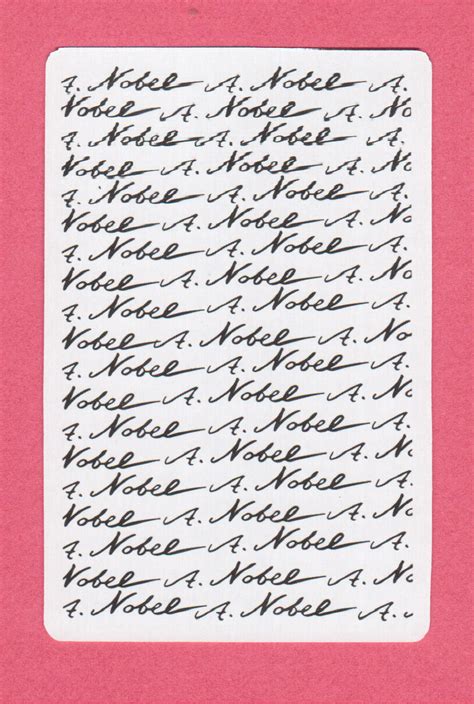 A. Nobel A. Nobel A.
Nobel A. Nobel A. No
A. Nobel A. Nobel A.
Nobel A. Nobel A. No
A. Nobel A. Nobel A.
Nobel A. Nobel A. No
A. Nobel A. Nobel A.
Nobel A. Nobel A. No
A. Nobel A. Nobel A.
Nobel A. Nobel A. No
A. Nobel A. Nobel A.
Nobel A. Nobel A. No
A. Nobel A. Nobel A.
Nobel A. Nobel A. No
A. Nobel A. Nobel A.
Nobel A. Nobel A. No
A. Nobel A. Nobel A.
Nobel A. Nobel A. No
A. Nobel A. Nobel A.